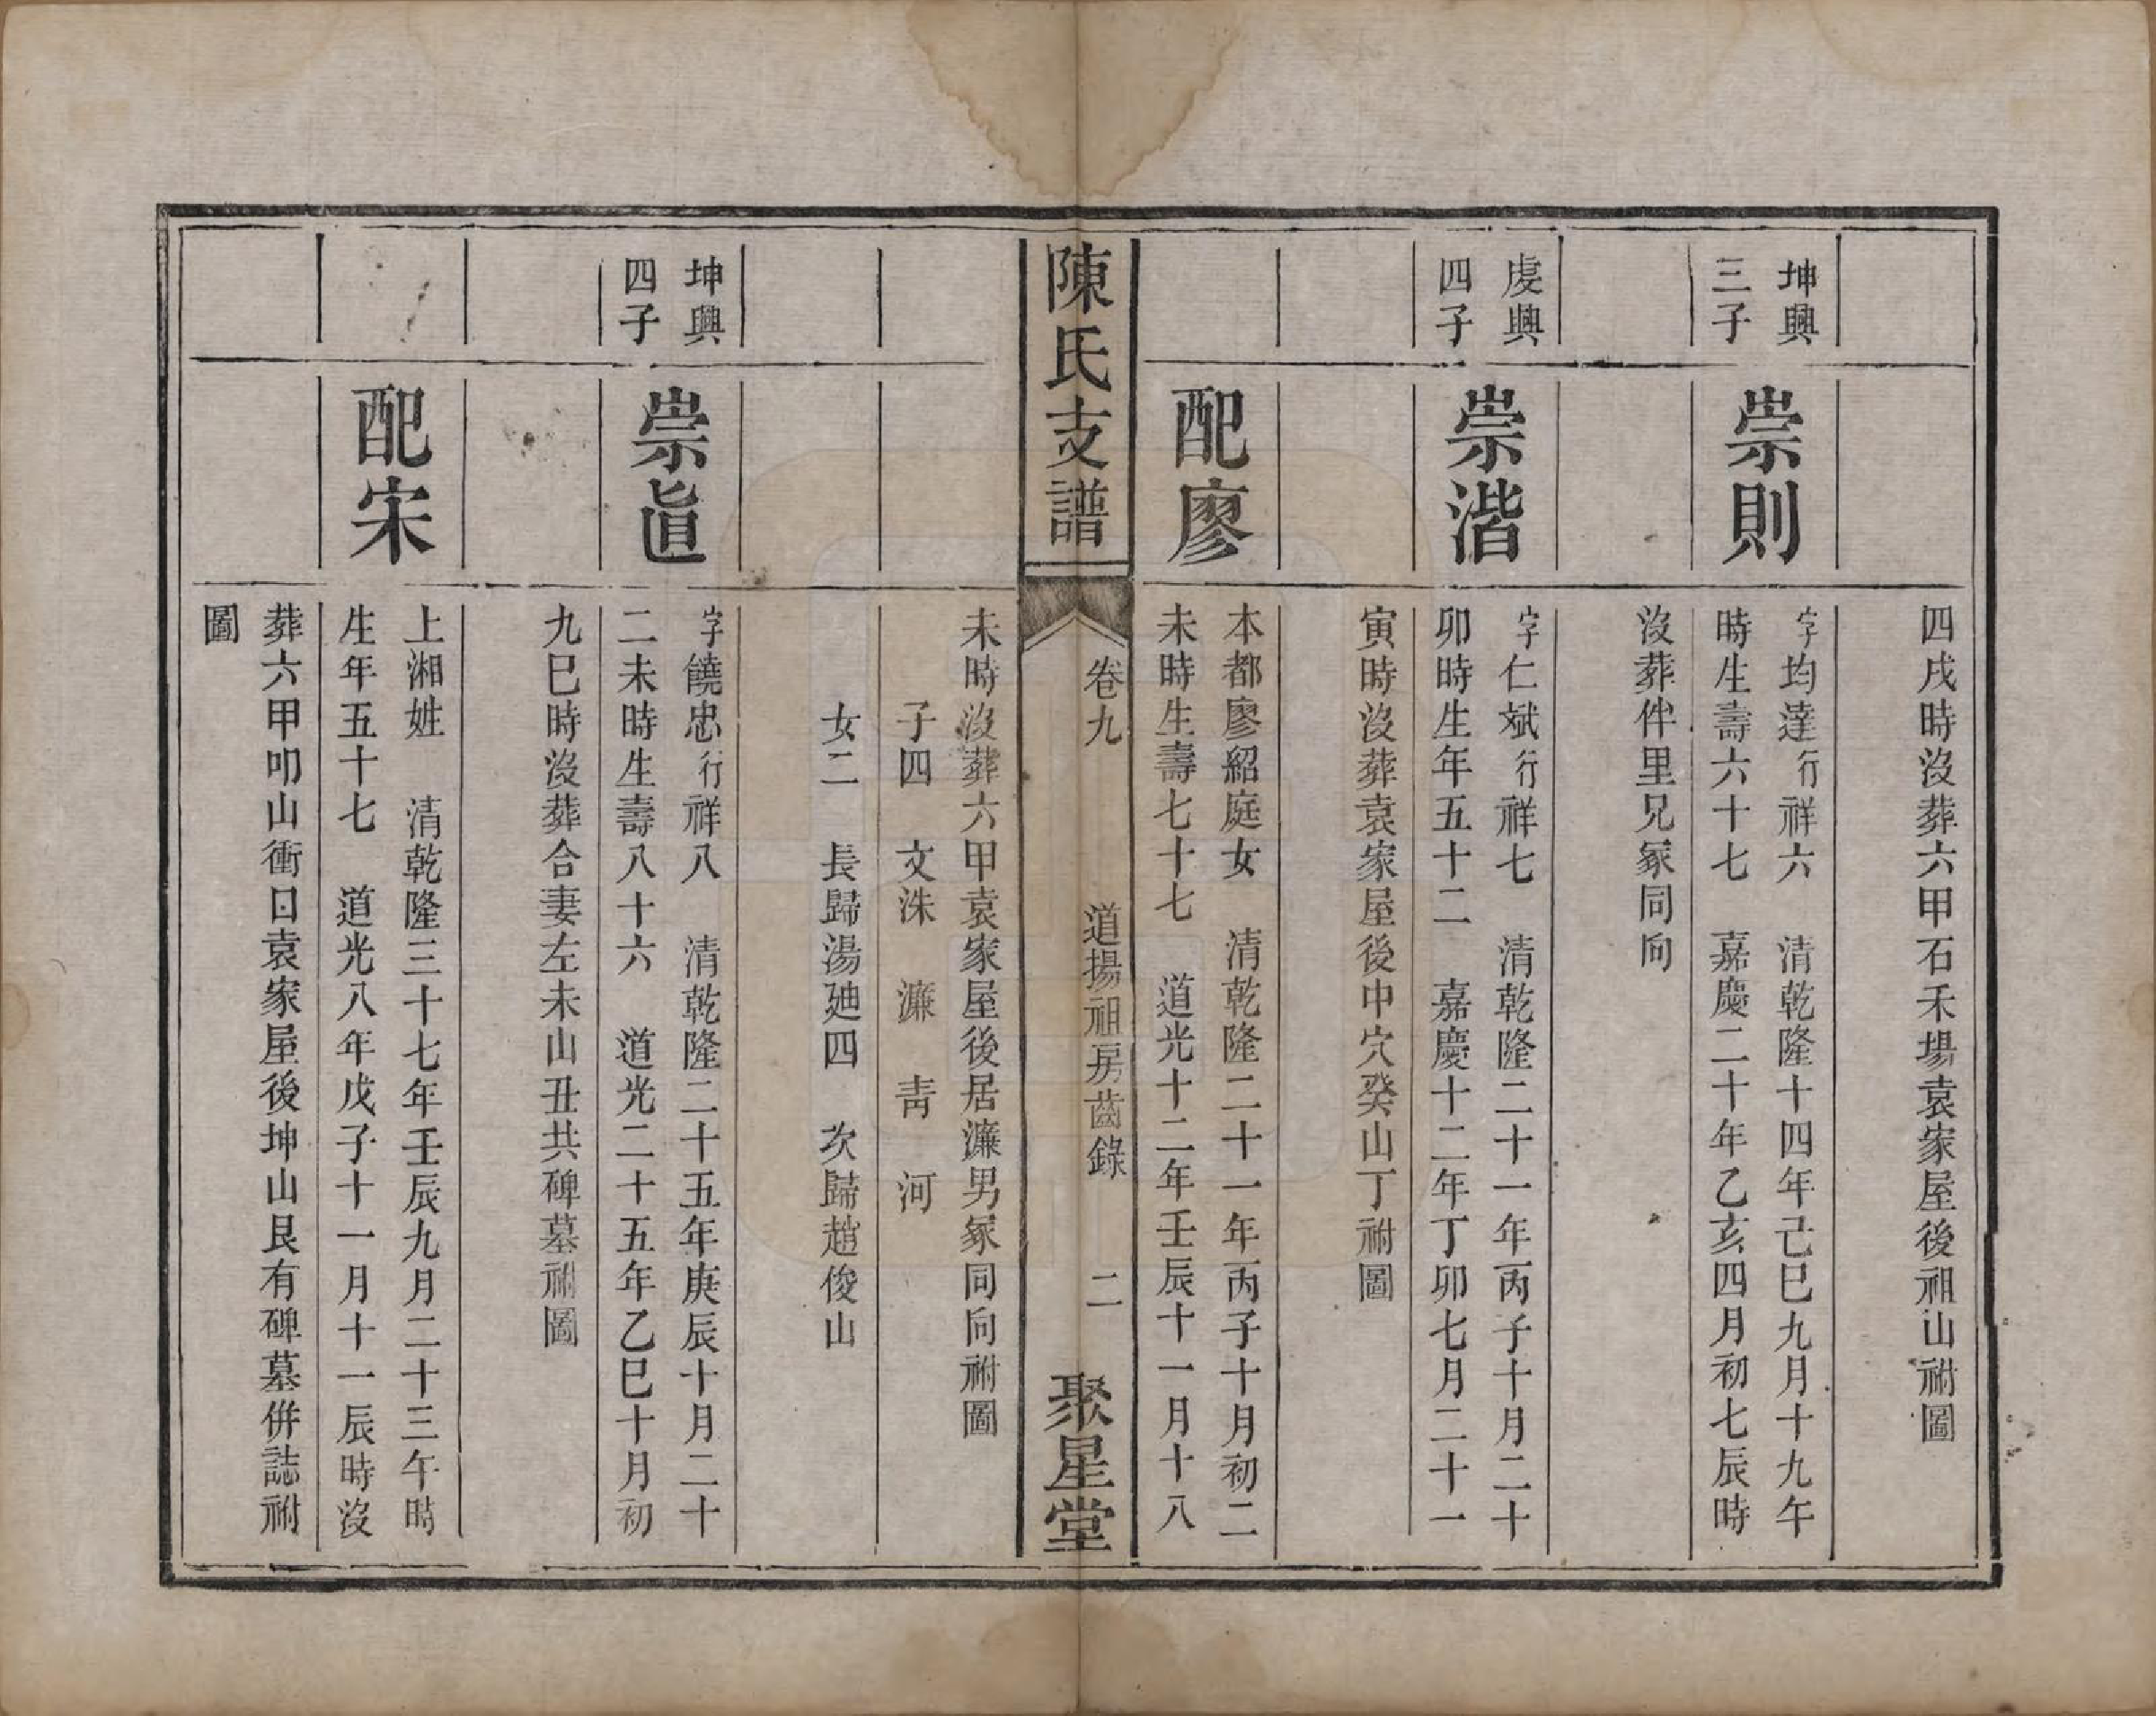 四戌時沒葬六甲石禾場袁家屋後祖山祔圖
坤興
三子
崇則
字均達行祥六　清乾隆十四年己巳九月十九午
時生壽六十七　嘉慶二十年乙亥四月初七辰時
沒葬伴里兄冢同向
虔興
四子
崇湝
字仁斌行祥七　清乾隆二十一年丙子十月二十
卯時生年五十二　嘉慶十二年丁卯七月二十一
寅時沒葬袁家屋後中穴癸山丁祔圖
配廖
本都廖紹庭女　清乾隆二十一年丙子十月初二
未時生壽七十七　道光十二年壬辰十一月十八
陳氏支譜
卷九　道揚祖房齒錄　二
聚星堂
未時沒葬六甲袁家屋後居濂男冢同向祔圖
子四　文洙　濂　靑　河
女二　長歸湯廸四　次歸趙俊山
坤興
四子
崇眞
字饒忠行祥八　清乾隆二十五年庚辰十月二十
二未時生壽八十六　道光二十五年乙巳十月初
九巳時沒葬合妻左未山丑共碑墓祔圖
配宋
上湘姓　清乾隆三十七年壬辰九月二十三午時
生年五十七　道光八年戊子十一月十一辰時沒
葬六甲叩山衝口袁家屋後坤山艮有碑墓併誌祔
圖